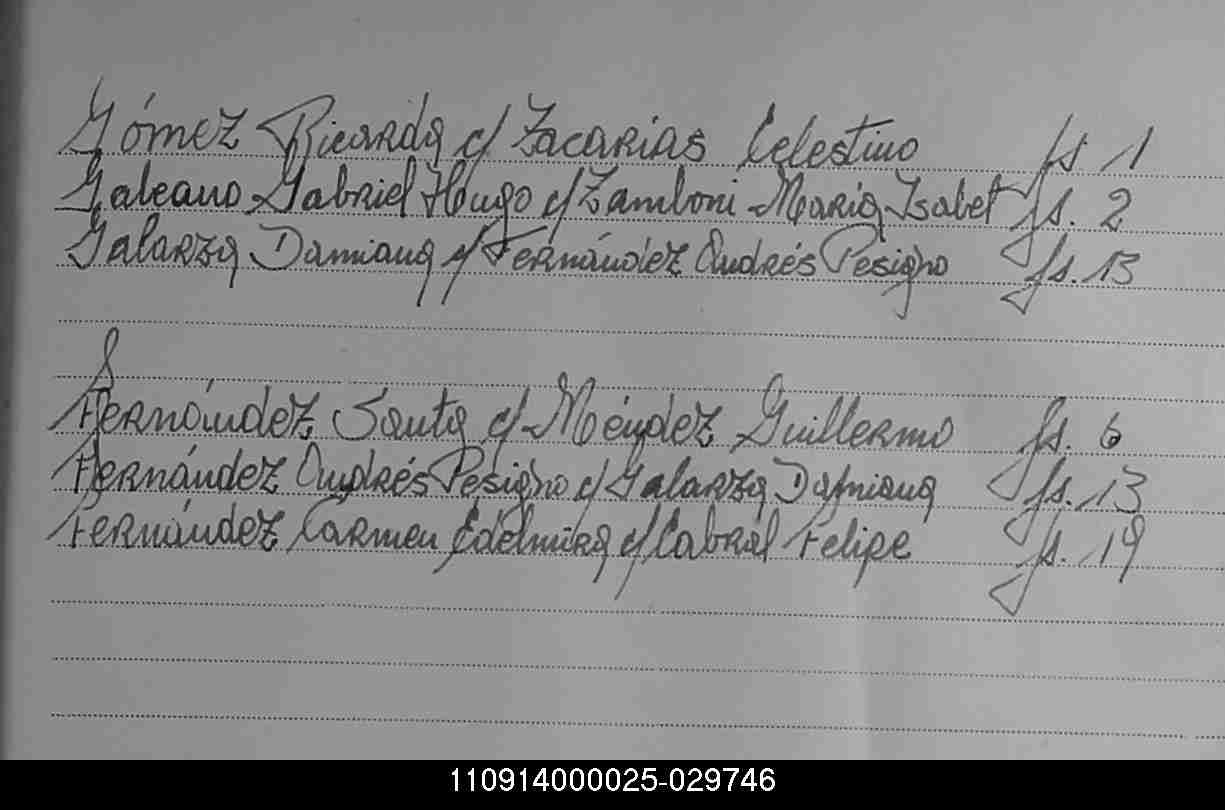 Gómez Ricarda c/ Zacarias Celestino fs. 1
Galeano Gabriel Hugo c/ Zamboni María Isabel fs. 2
Galarza Damiana c/ Fernández Andrés Pesigno fs. 13
Fernández Santa c/ Méndez Guillermo fs. 6
Fernández Andrés Pesigno c/ Galarza Damiana fs. 13
Fernández Carmen Edelmira c/ Cabral Felipe fs. 19
110914000025-029746